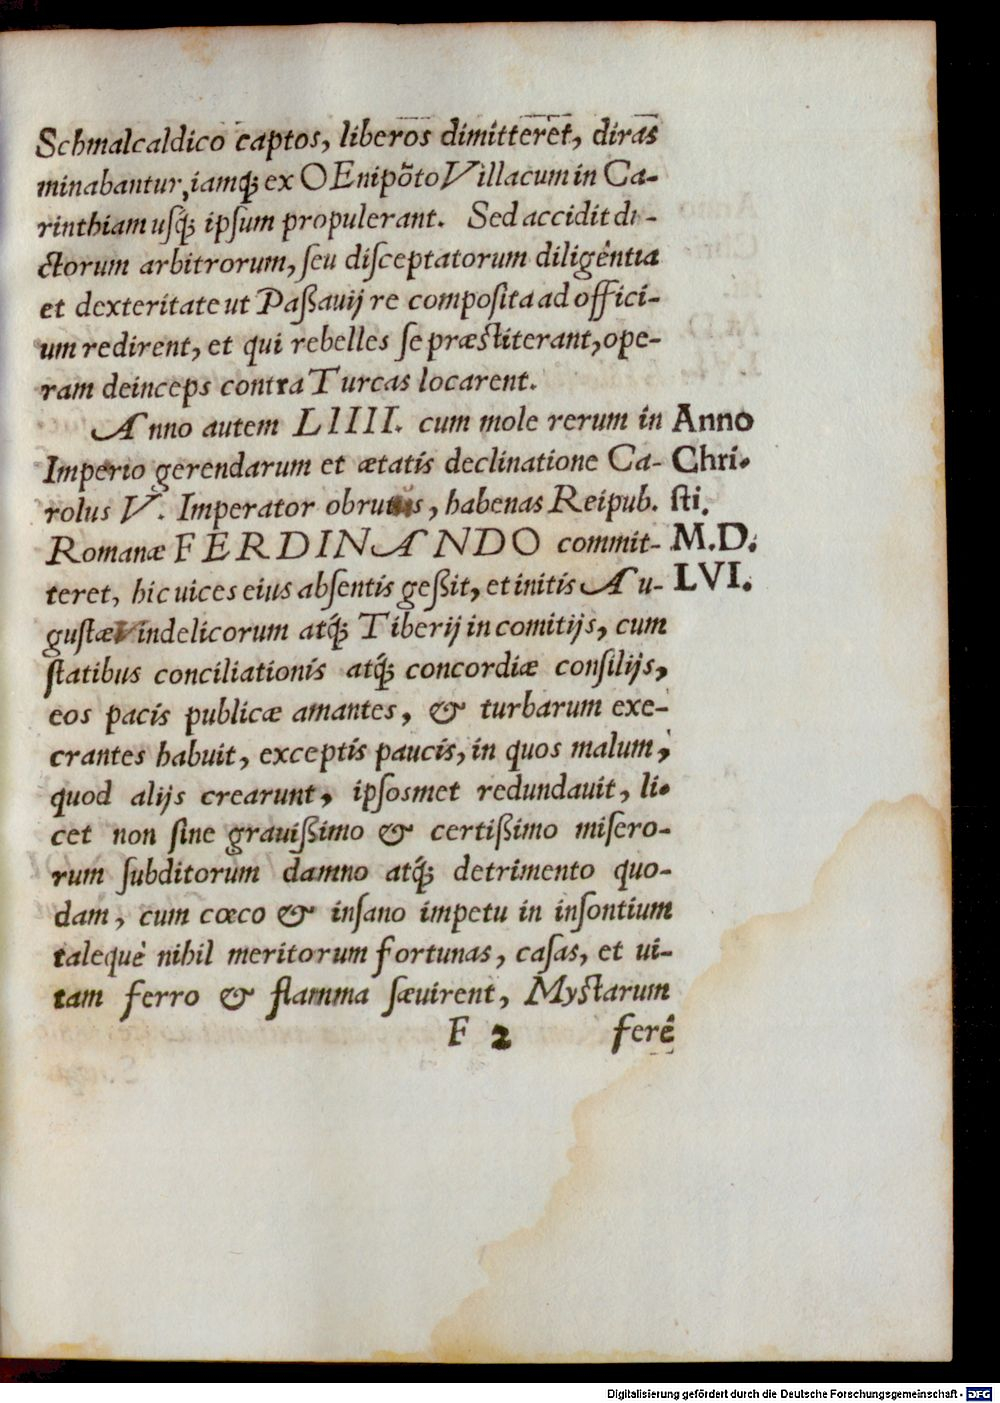 Schmalcaldico captos, liberos dimitteret, diras
minabantur, iamq́; ex OEnipõto Villacum in Ca-
rinthiam usq́; ipsum propulerant. Sed accidit di-
ctorum arbitrorum, seu disceptatorum diligẽntia
et dexteritate ut Paßauij re composita ad offici-
um redirent, et qui rebelles se præstiterant, ope-
ram deinceps contra Turcas locarent.
Anno autem LIIII. cum mole rerum in
Imperio gerendarum et ætatis declinatione Ca-
rolus V. Imperator obrutus, habenas Reipub.
Romanæ FERDINANDO commit-
teret, hic uices eius absentis geßit, et initis Au-
gustæ Vindelicorum atq́; Tiberij in comitijs, cum
statibus conciliationis atq́; concordiæ consilijs,
eos pacis publicæ amantes, & turbarum exe-
crantes habuit, exceptis paucis, in quos malum,
quod alijs crearunt, ipsosmet redundauit, li-
cet non sine grauißimo & certißimo misero-
rum subditorum damno atq́; detrimento quo-
dam, cum cœco & insano impetu in insontium
talequè nihil meritorum fortunas, casas, et ui-
tam ferro & flamma sæuirent, Mystarum
F 2 ferê
Anno
Chri-
sti.
M.D.
LVI.
Digitalisierung gefördert durch die Deutsche Forschungsgemeinschaft - DFG